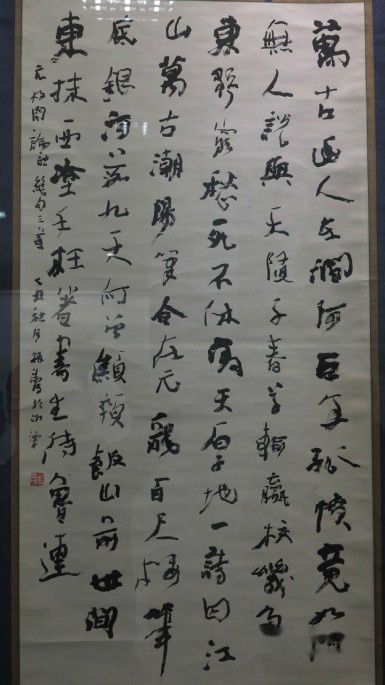 萬古幽人在澗阿百年孤憤竟如何
無人說與天隨子春草輸贏校幾多
東野窮愁死不休高天厚地一詩囚江
山萬古潮陽筆合在元龍百尺樓筆
底銀河落九天何曾顦顇飯山前世間
東抹西塗手枉著書生待魯連
元好問論詩絕句三首